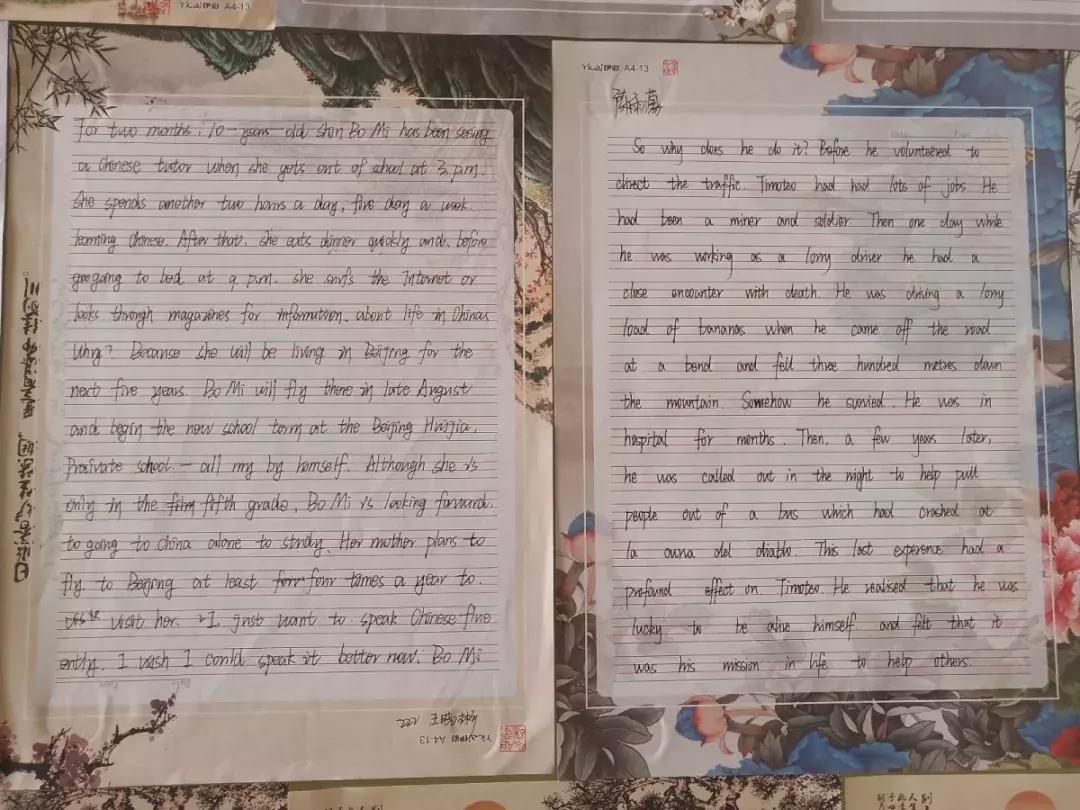 Yicai伊彩 A4-13
For two months, 10-years old Shin Bo Mi has been seeing
a Chinese tutor when she gets out of school at 3 p.m.
She spends another two hours a day, five day a week.
learning Chinese. After that, she eats dinner quickly and, before
going to bed at 9 p.m. she surfs the Internet or
looks through magazines for information about life in China
Why? Because she will be living in Beijing for the
next five years. Bo Mi will fly there in late August
and begin the new school term at the Beijing Huijia,
Praivate school. — all my by himself. Although she is
only in the film fifth grade, Bo Mi is looking forward.
to going to China alone to study. Her mother plans to
fly to Beijing at least four four times a year to.
visit her. "I just want to speak Chinese flue
ently. I wish I could speak it better now. Bo Mi
222
Yicai伊彩 A4-13
Yicai伊彩 A4-13
So why does he do it? Before he volunteered to
direct the traffic. Timoteo had had lots of jobs. He
had been a miner and soldier Then one day while
he was working as a lorry driver he had a
close encounter with death. He was driving a lorry
load of bananas when he came off the road
at a bend and fell three hundred metres down
the mountain. Somehow he survied. He was in
hospital for months. Then, a few years later,
he was called out in the night to help pull
people out of a bus which had crashed at
la curva del diablo. This last experence had a
profound effect on. Timoteo. He realised that he was
lucky to be alive himself. and felt that it
was his mission in life to help others.